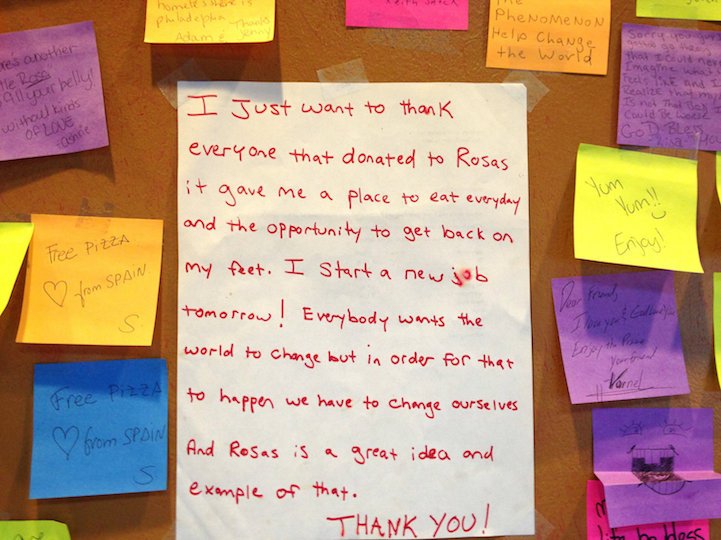 homeless here is
philadelphia
Thanks
Adam & Jenny
Keith
The
PheNoMeNoN
Help Change
the World
another
Rosa
fill your belly!
without kinds
OF LOVE
Sorry you guys
have go
that I could never
Imagine what
Feels like and I
Realize that my
Is not that Bad
Could Be Worse
GoD Bless
I Just want to thank
everyone that donated to Rosas
it gave me a place to eat everyday
and the opportunity to get back on
my feet. I Start a new job
tomorrow! Everybody wants the
world to change but in order for that
to happen we have to change ourselves
And Rosas is a great idea and
example of that.
THANK YOU!
Free PIZZA
♡ from SPAIN
S.
Free PIZZA
♡ from SPAIN
S
Yum
Yum!!
Enjoy!
Dear Friend,
I love you & God love you
Enjoy the
Your friend